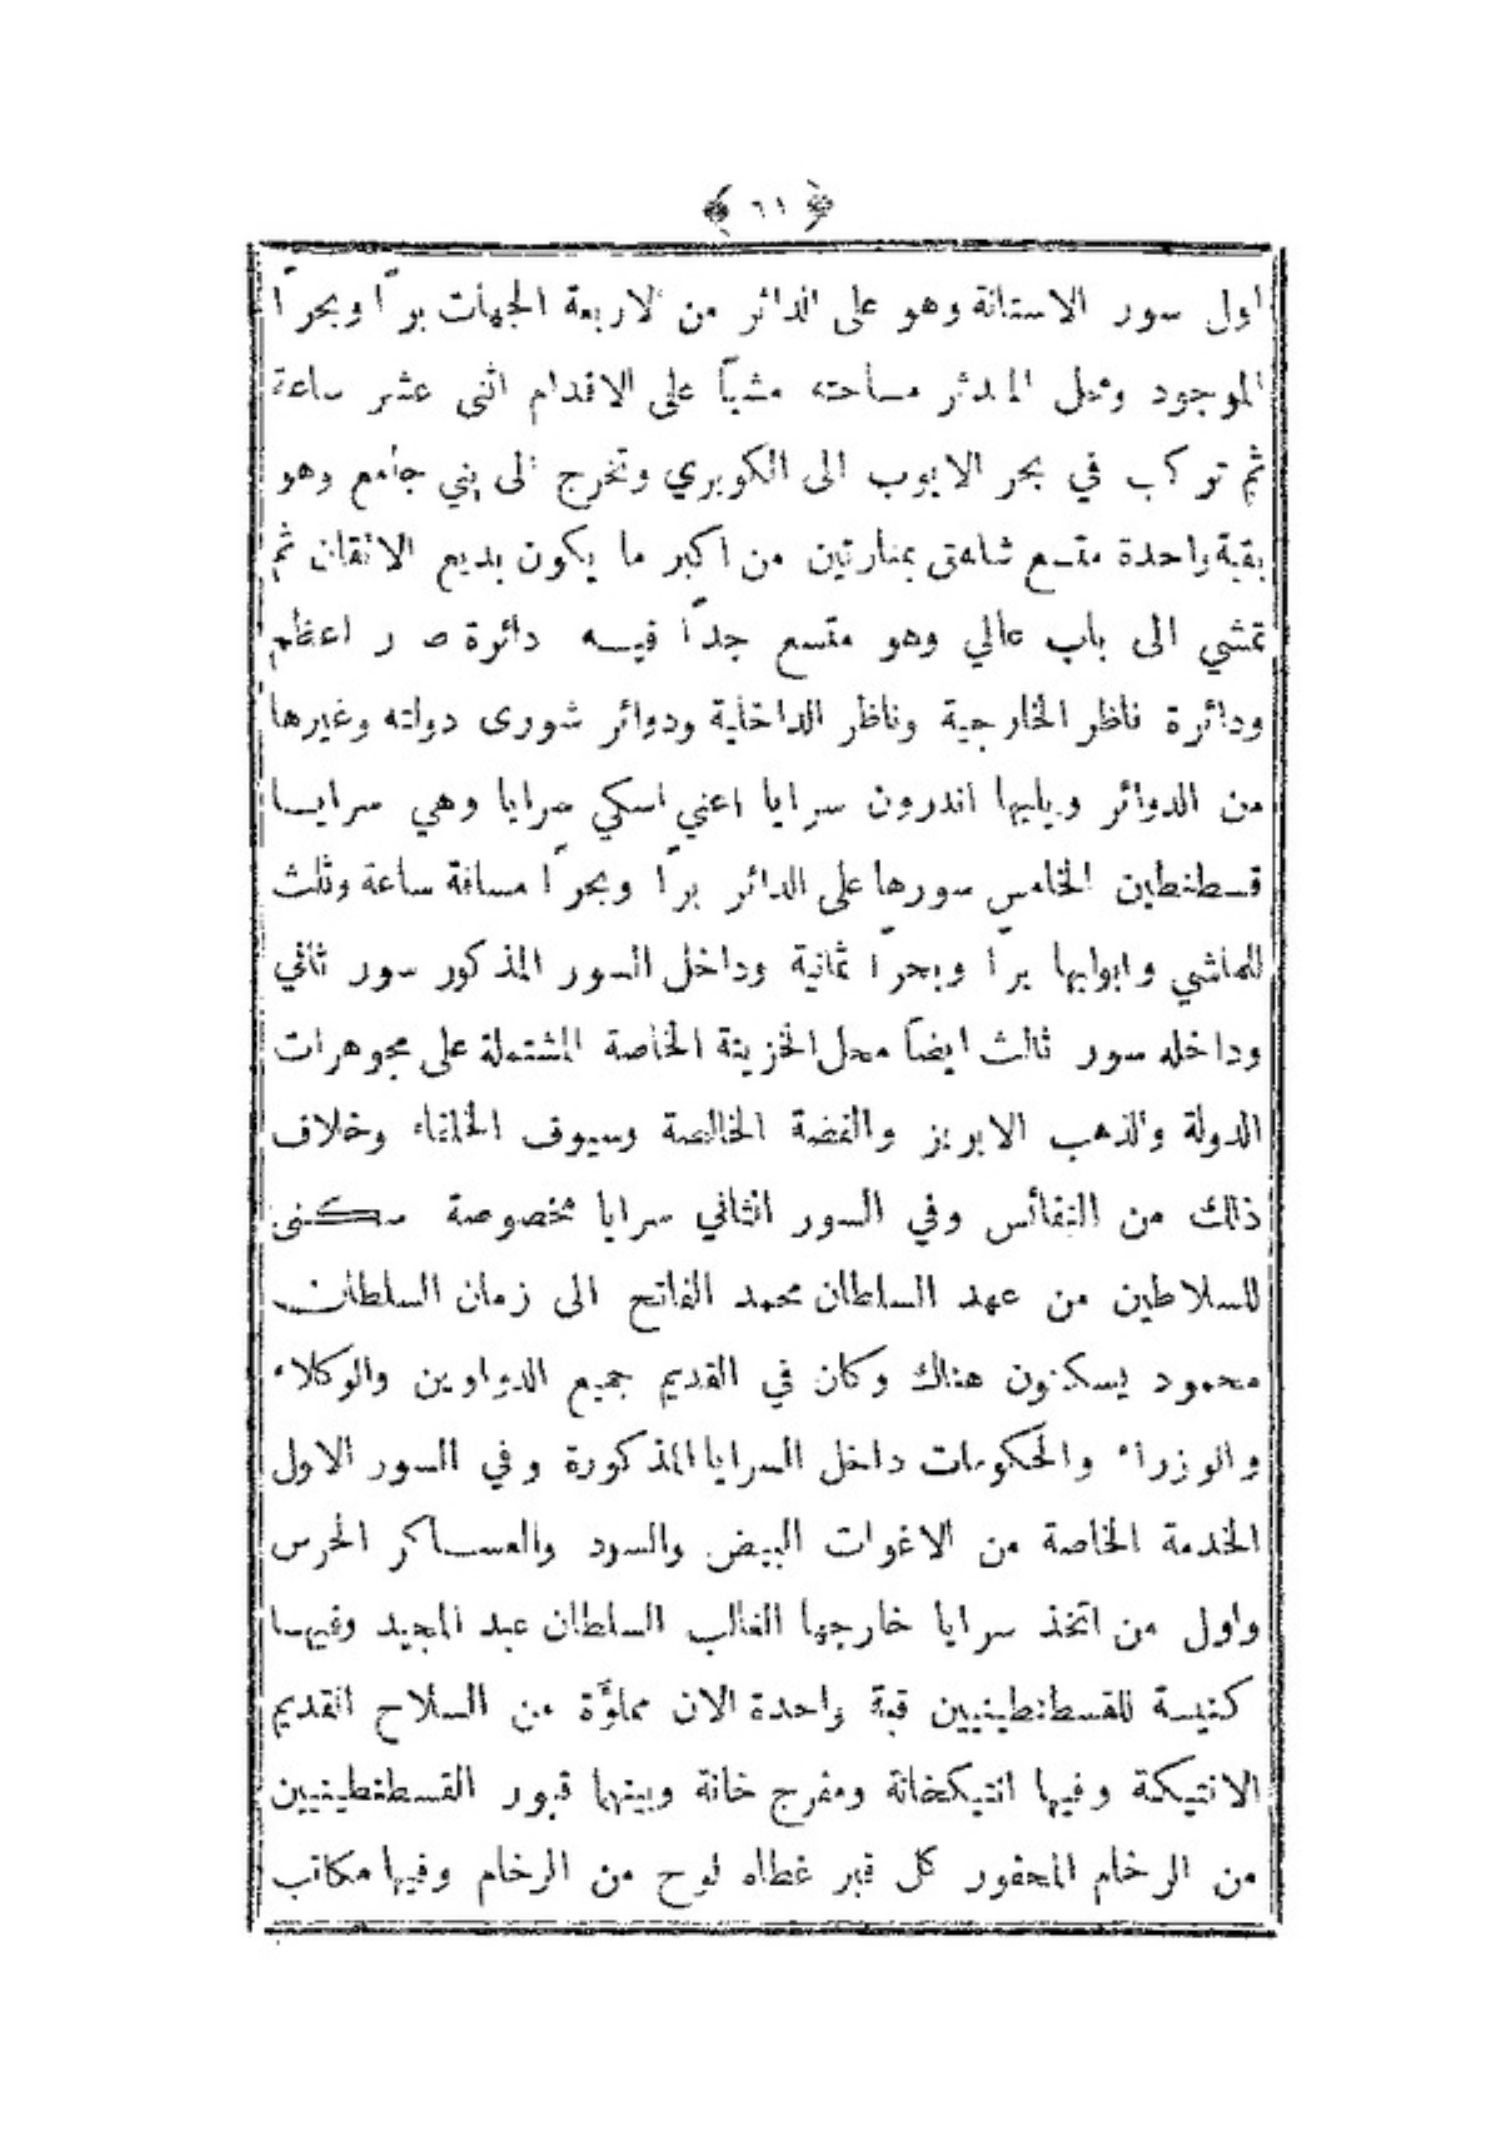 ﴿ ٦١ ﴾
اول سور الاستانة وهو على الدائر من الاربعة الجهات براً وبحراً
الموجود وقيل الداثر مساحته مشياً على الاقدام اثنى عشر ساعة
ثم تركب في بحر الايوب الى الكوبري وتخرج الى يني جامع وهو
بقبة واحدة متسع شاهق بمنارتين من اكبر ما يكون بديع الاتقان ثم
تمشي الى باب عالي وهو متسع جداً فيه دائرة صدر اعظم
ودائرة ناظر الخارجية وناظر الداخلية ودوائر شورى دولته وغيرها
من الدوائر ويليها اندرون سرايا اعني اسكي سرايا وهي سرايا
قسطنطين الخامس سورها على الدائر براً وبحراً مسافة ساعة وثلث
للماشي وابوابها براً وبحراً ثمانية وداخل السور المذكور سور ثاني
وداخله سور ثالث ايضاً محل الخزينة الخاصة المشتملة على مجوهرات
الدولة والذهب الابريز والفضة الخالصة وسيوف الخلفاء وخلاف
ذلك من النفائس وفي السور الثاني سرايا مخصوصة سكنى
للسلاطين من عهد السلطان محمد الفاتح الى زمان السلطان
محمود يسكنون هناك وكان في القديم جميع الدواوين والوكلاء
والوزراء والحكومات داخل السرايا المذكورة وفي السور الاول
الخدمة الخاصة من الاغوات البيض والسود والعساكر الحرس
واول من اتخذ سرايا خارجها الغالب السلطان عبد المجيد وفيها
كنيسة للقسطنطينيين قبة واحدة الان مملوَّة من السلاح القديم
الانتيكة وفيها انتيكخانة ومفرج خانة وبينهما قبور القسطنطينيين
من الرخام المحفور كل قبر غطاه لوح من الرخام وفيها مكاتب